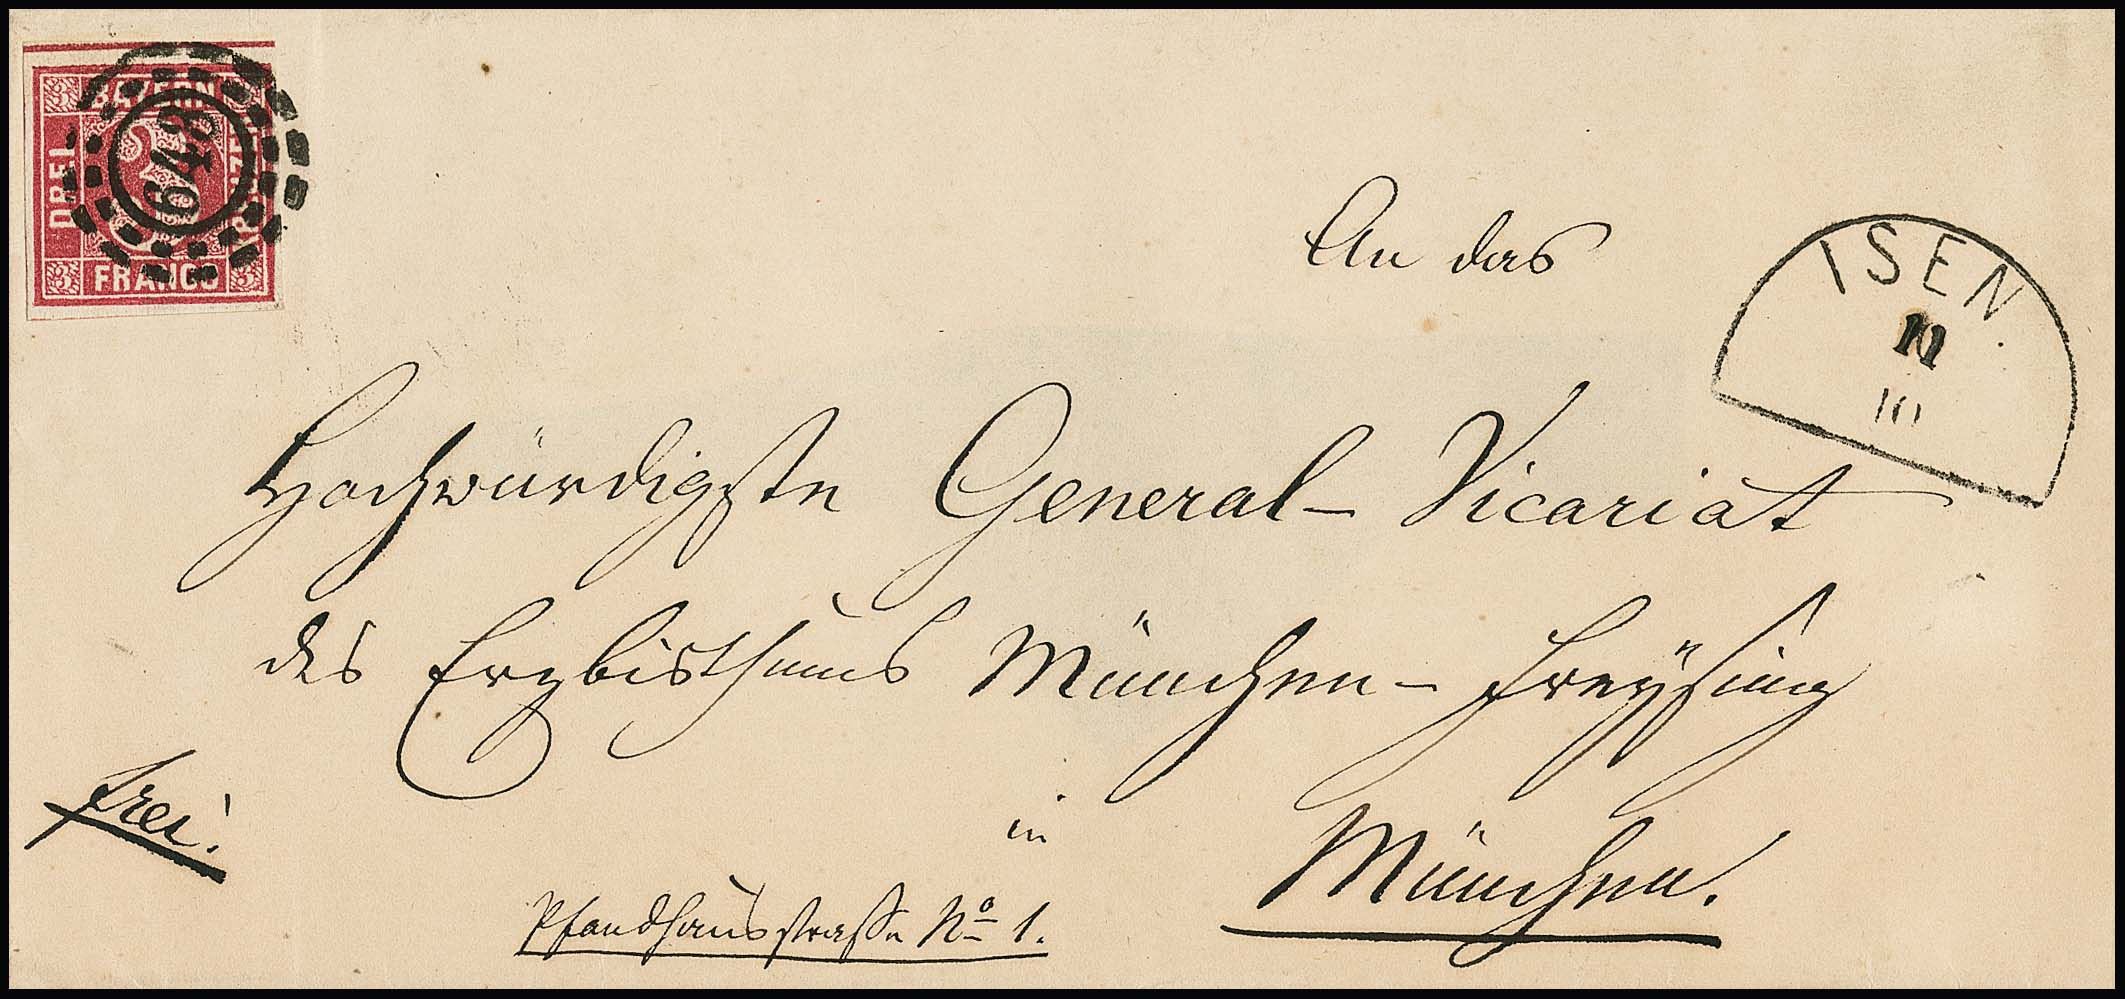 BAYERN
DREI
KREUZER
FRANCO
3 3 3 3
3
643
ISEN.
11
10
An das
Hochwürdigste General-Vicariat
des Erzbisthums München-Freysing
frei!
in
München.
Pfandhausstrasse No 1.